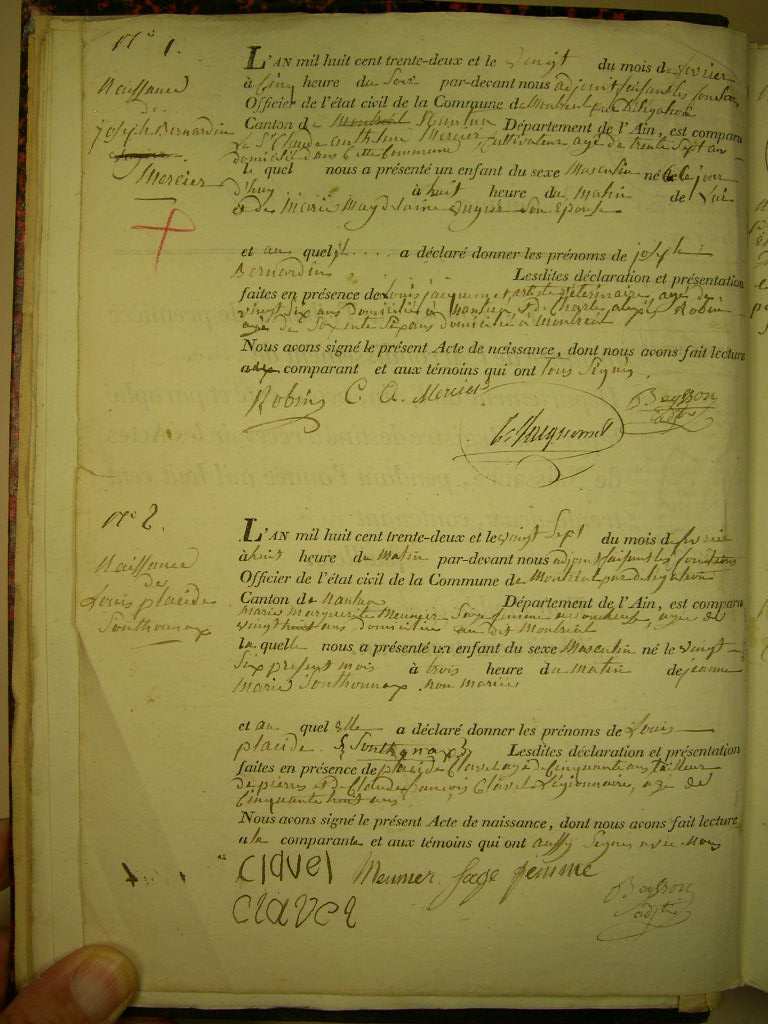 N° 1.
Naissance
de
joseph Bernardin
Mercier
L'AN mil huit cent trente-deux et le vingt du mois de février
à Cinq heure du Soir par-devant nous adjoint faisant les fonctions
Officier de l'état civil de la Commune de Montréal par Délégation
Canton de Montréal Nantua Département de l'Ain, est comparu
Le Sr Claude anthelme Mercier Cultivateur age de trente Sept ans
domicilié dans Cette Commune
Le quel nous a présenté un enfant du sexe Masculin né le jour
d'huy à huit heure du Matin de Lui
et de Marie Magdelaine Son Epouse
et au quel il a déclaré donner les prénoms de joseph
Bernardin Lesdites déclaration et présentation
faites en présence de Louis jacquemet, artiste Véterinaire, agé de
vingt dix ans domicilié à Nantua, et de Charles alexis Robin
agé de Soixante ans domicilié à Montréal
Nous avons signé le présent Acte de naissance, dont nous avons fait lecture
aux comparant et aux témoins qui ont tous Signés.
Robin C. A. Mercier
Beysson
L. Jacquemet adjt
N° 2.
Naissance
de
Louis placide
Sonthonnax
L'AN mil huit cent trente-deux et le vingt Sept du mois de fevrier
à huit heure du Matin par-devant nous adjoint faisant les fonctions
Officier de l'état civil de la Commune de Montréal par délégation
Canton de Nantua Département de l'Ain, est comparu
Marie Marguerite Meunier Sage femme accoucheuse, agée de
vingt huit ans domiciliée au dit Montréal
la quelle nous a présenté un enfant du sexe Masculin né le vingt
Six present mois à trois heure du Matin de jeanne
Marie Sonthonnax non mariée
et au quel Elle a déclaré donner les prénoms de Louis
placide Sonthonax Lesdites déclaration et présentation
faites en présence de placide Clavel agé de Cinquante ans tailleur
de pierres et de Claude françois Clavel Légionnaire, agé de
Cinquante huit ans
Nous avons signé le présent Acte de naissance, dont nous avons fait lecture,
a la comparante et aux témoins qui ont aussy Signés avec Nous
Clavel Meunier Sage femme
Beysson
Clavel adjt